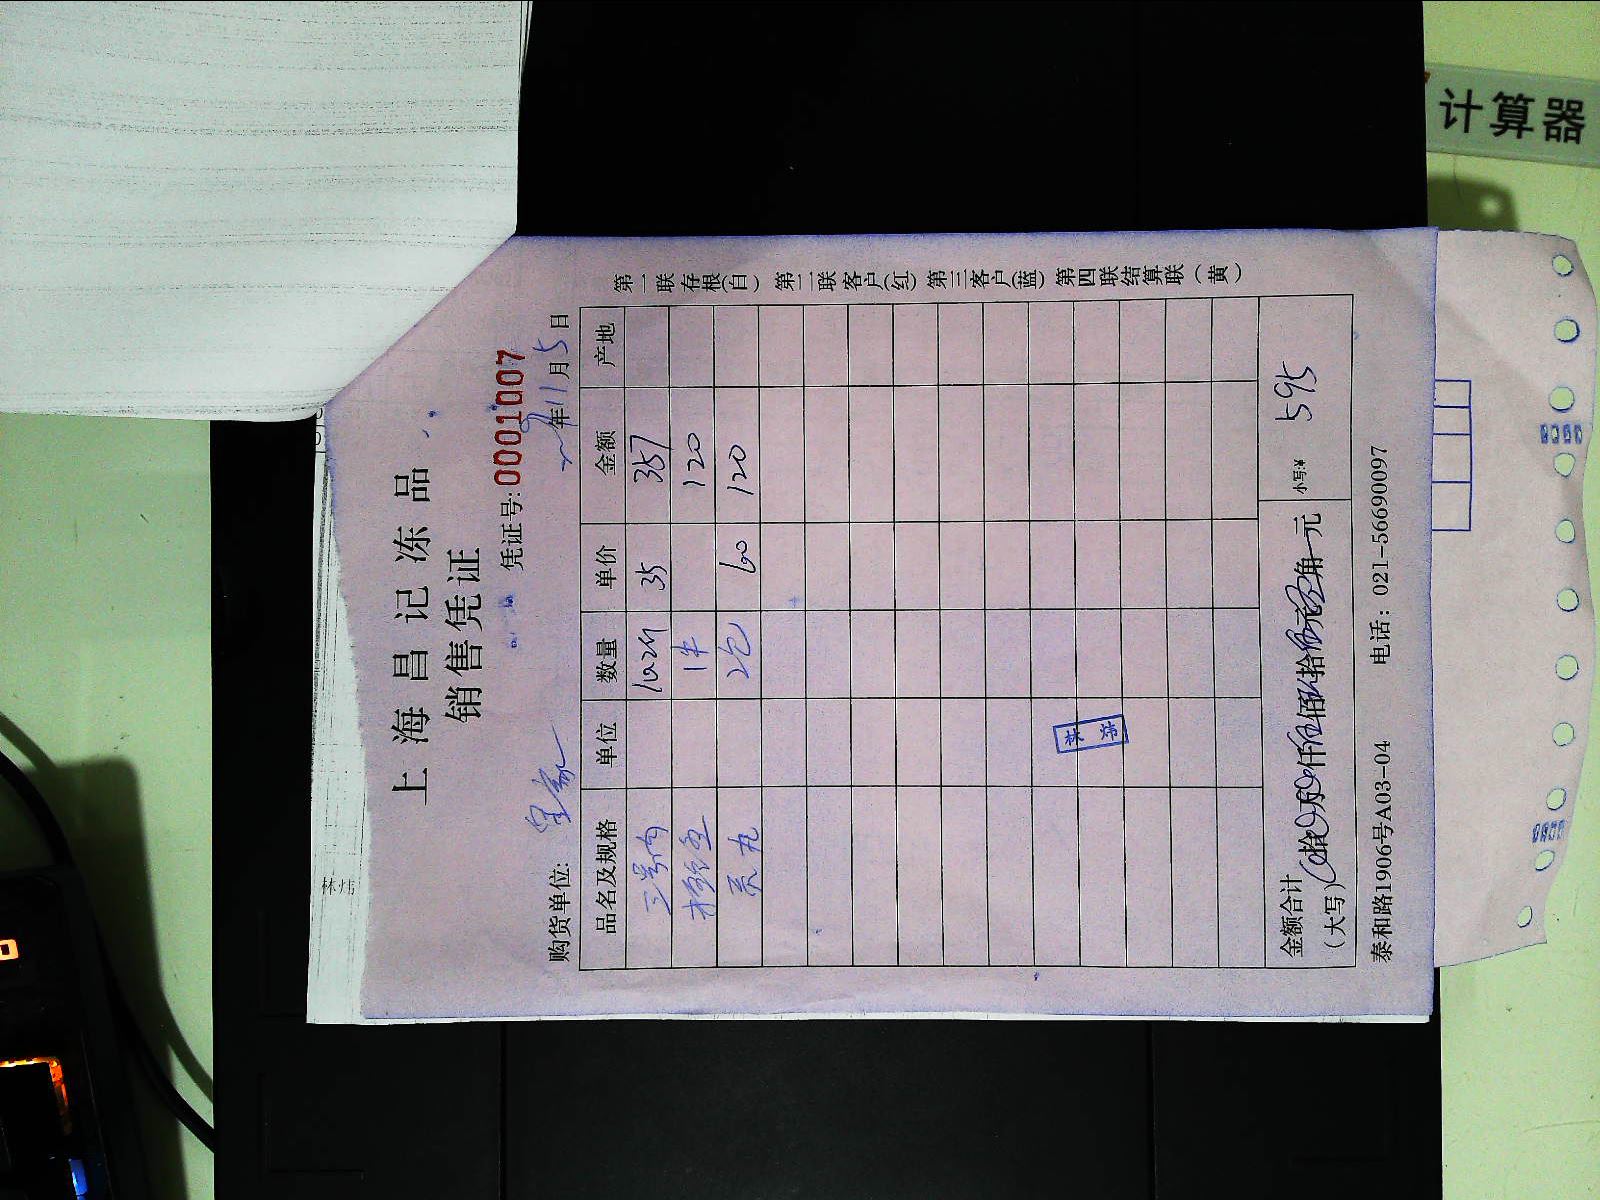 计算器
上海昌记冻品
销售凭证
凭证号: 0001007
年11月5日
购货单位:
品名及规格 单位 数量 单价 金额 产地
三号肉 10.2斤 35 357
1件 120
贡丸 2包 60 120
林炜
金额合计
（大写） 拾 万 仟 佰 拾 元 角 元 小写:¥ 595
泰和路1906号A03-04 电话：021-56690097
第一联存根(白) 第二联客户(红) 第三客户(蓝) 第四联结算联（黄）
林炜